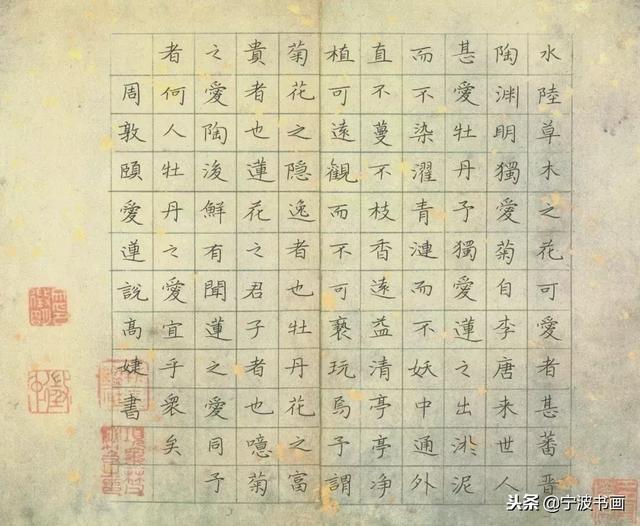 水陸草木之花可愛者甚蕃晋
陶渊明獨愛菊自李唐来世人
甚愛牡丹予獨愛蓮之出淤泥
而不染濯青漣而不妖中通外
直不蔓不枝香遠益清亭亭净
植可遠觀而不可褻玩焉予謂
菊花之隐逸者也牡丹花之富
貴者也蓮花之君子者也噫菊
之愛陶後鮮有聞蓮之愛同予
者何人牡丹之愛宜乎衆矣
周敦頤愛蓮說高婕書
头条@宁波书画